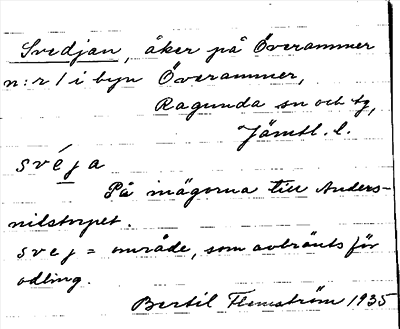 Svedjan, åker på Överammer
n:r 1 i byn Överammer,
Ragunda sn och tg,
Jämtl. l.
svéja
På inägorna till Anders-
nilstorpet.
svej = område, som avbränts för
odling.
Bertil Flemström 1935